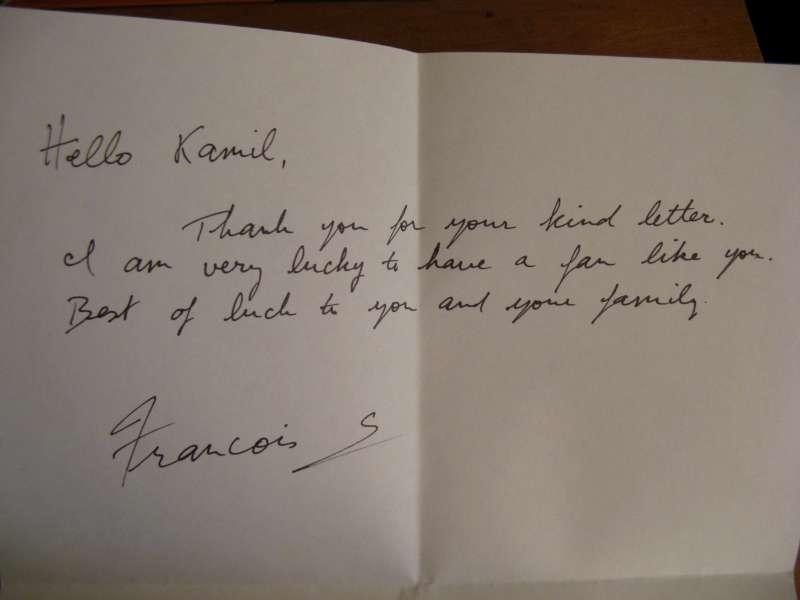 Hello Kamil,
Thank you for your kind letter.
I am very lucky to have a fan like you.
Best of luck to you and your family.
Francois S